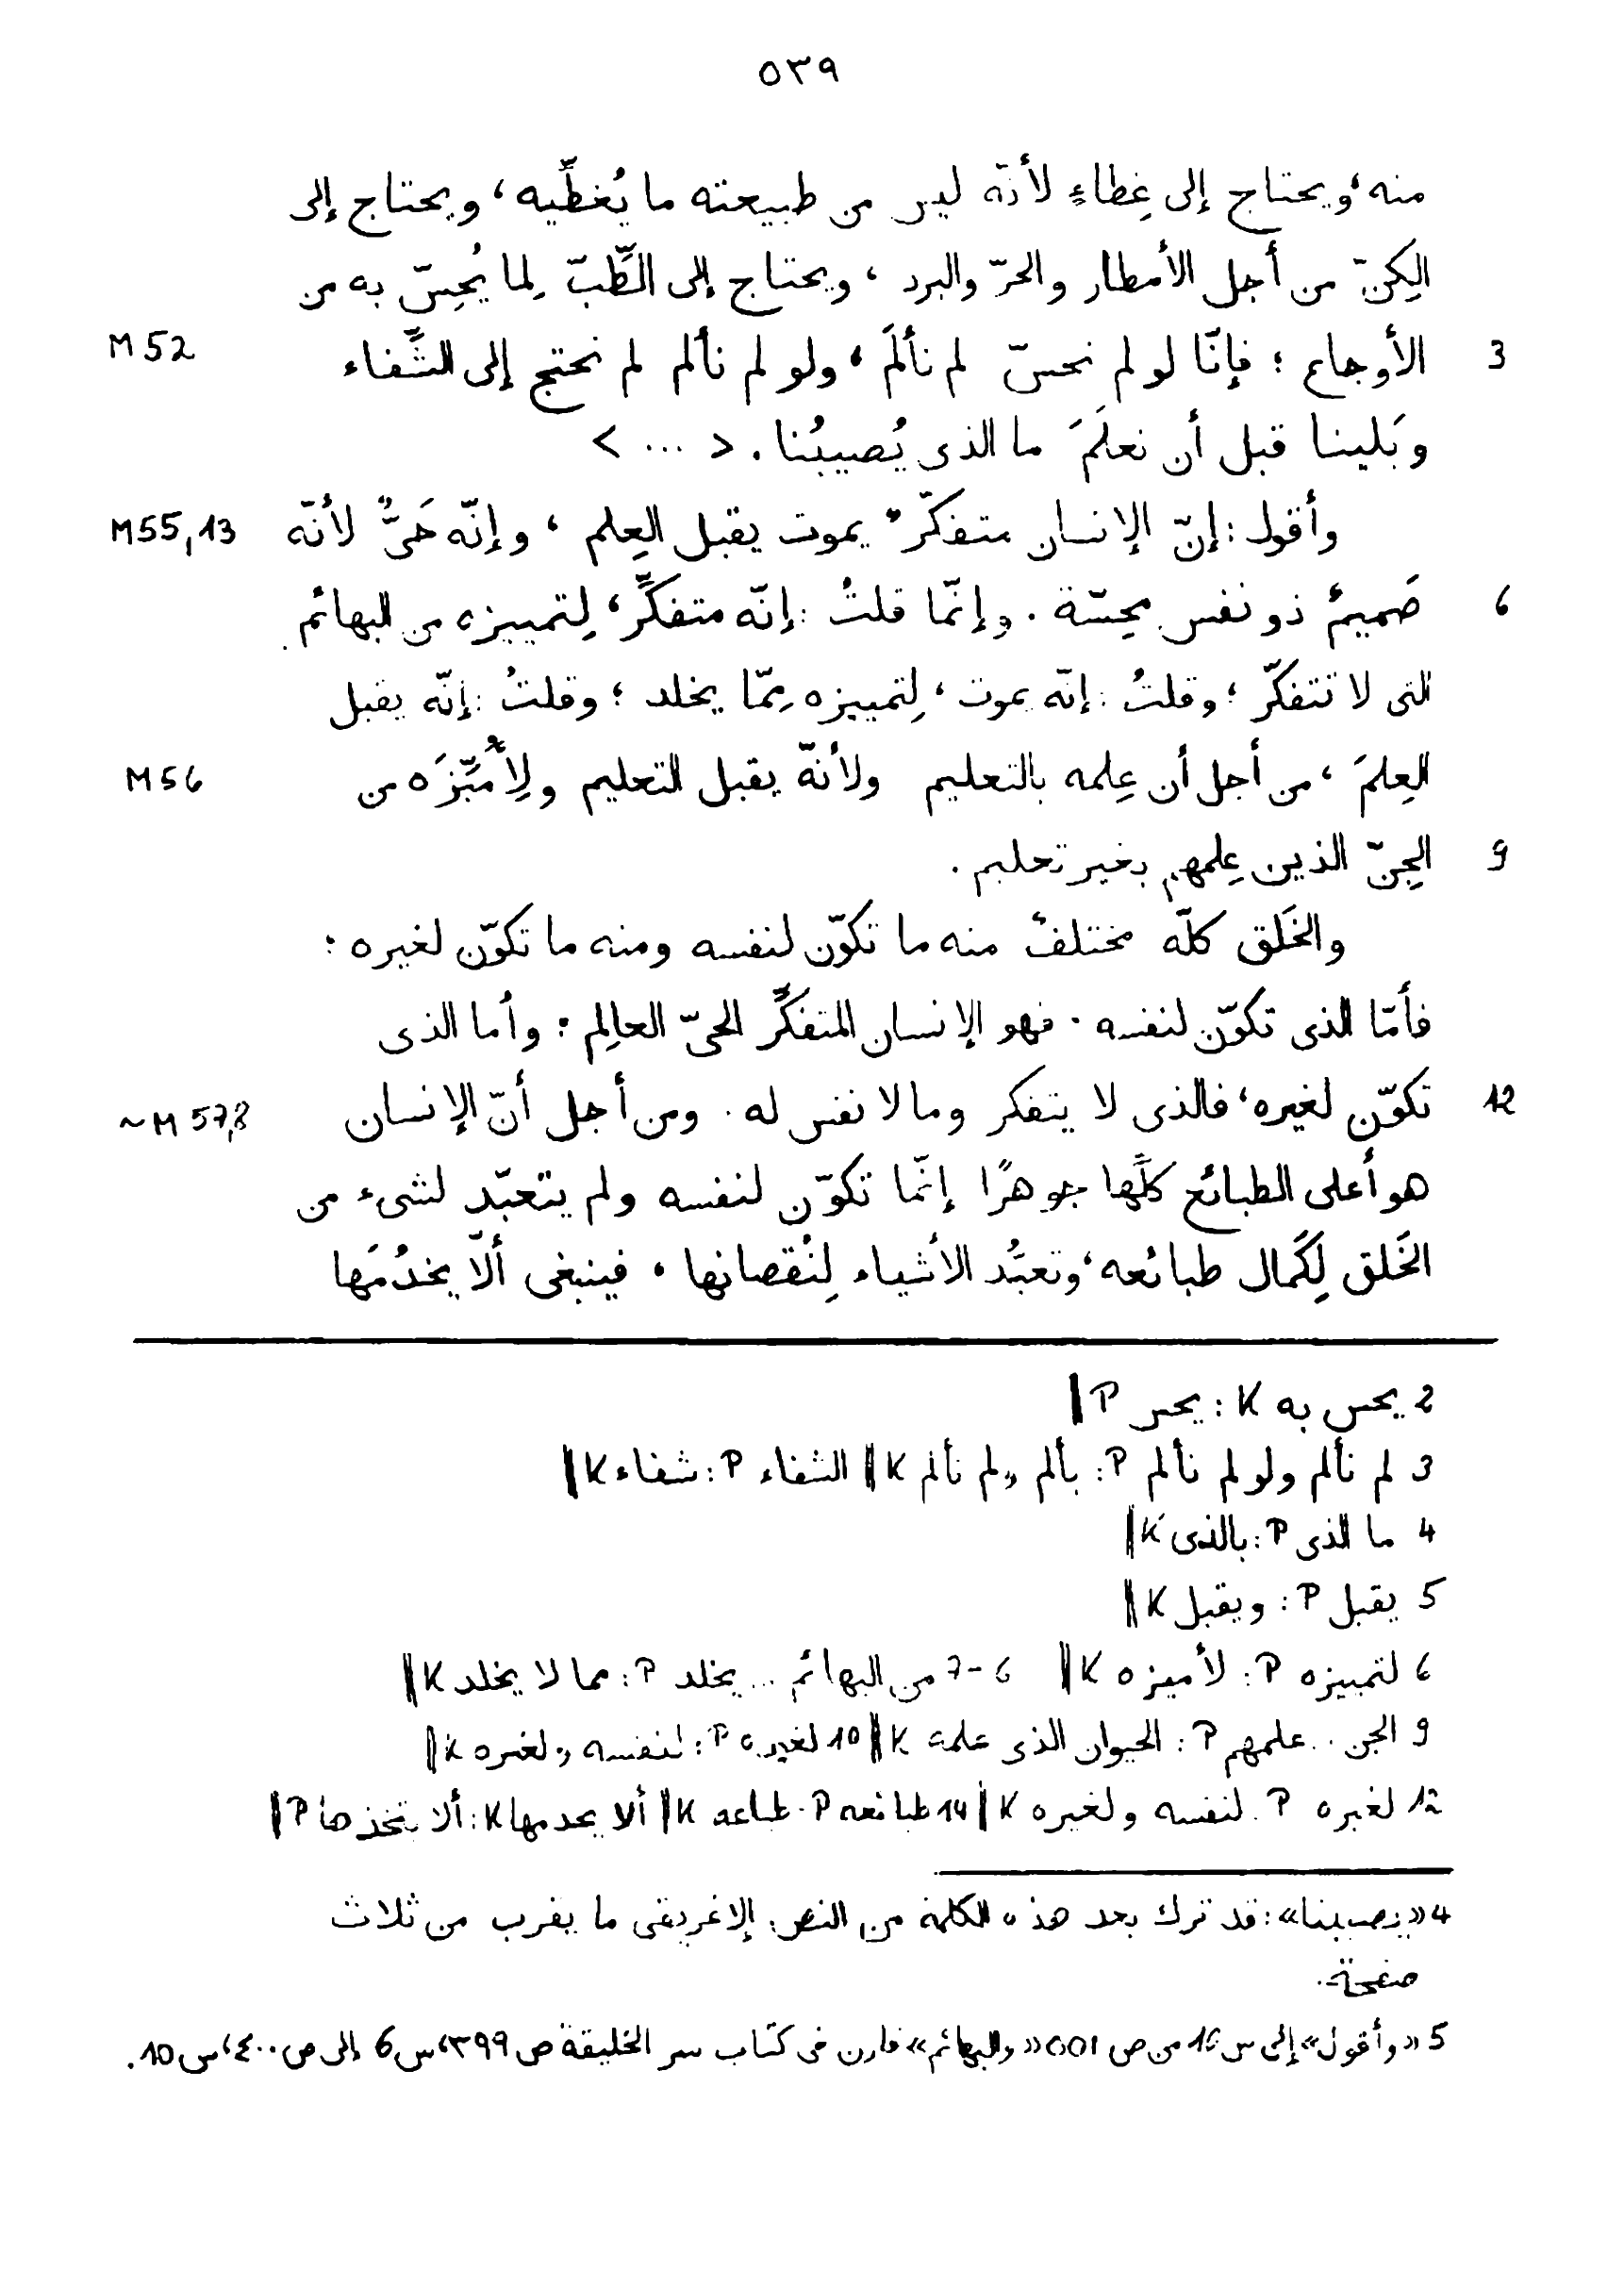 ٥٣٩
منه، ويحتاج إلى غِطاءٍ لأنّه ليس من طبيعته ما يُغطِّيه، ويحتاج إلى
الكِنّ من أجل الأمطار والحرّ والبرد، ويحتاج إلى الطِّبّ لِما يُحِسّ به من
3 الأوجاع؛ فإنّا لو لم نحسّ لم نألَمَ، ولو لم نألم لم نحتج إلى الشِّفاء M 52
وبَلينا قبل أن نعلَمَ ما الذى يُصيبُنا. < ... >
وأقول: إنّ الإنسان متفكّرٌ يموت يقبل العِلم، وإنّه حَىٌّ لأنّه M55,13
6 صَميمٌ ذو نفس محِسّة. وإنّما قلتُ: إنّه متفكِّرٌ، لِتمييزه من البهائم
التى لا تتفكّر؛ وقلتُ: إنّه يموت، لِتمييزه مِمّا يخلد؛ وقلتُ: إنّه يقبل
العِلمَ، من أجل أن عِلمه بالتعليم ولأنّه يقبل التعليم ولِأُمَيِّزَه من M 56
9 الجِنّ الذين عِلمهم بغير تعليم.
والخَلق كلّه مختلفٌ منه ما تكوّن لنفسه ومنه ما تكوّن لغيره؛
فأمّا الذى تكوّن لنفسه. فهو الإنسان المتفكِّر الحىّ العالِم؛ وأما الذى
12 تكوّن لغيره، فالذى لا يتفكر وما لا نفس له. ومن أجل أنّ الإنسان ~M 57,8
هو أعلى الطبائع كلِّها جوهرًا إنّما تكوّن لنفسه ولم يتعبّد لشىء من
الخَلق لِكَمال طبائعه، وتعبُّد الأشياء لِنُقصانها. فينبغى ألاّ يخدُمَها
2 يحس به K: يحس P‖
3 لم نألم ولو لم نألم P: بألم ولم نألم K‖ الشفاء P: شفاء K‖
4 ما الذى P: بالذى K‖
5 يقبل P: ويقبل K‖
6 لتمييزه P: لأميزه K‖ 6-7 من البهائم ... يخلد P: مما لا يخلد K‖
9 الجن .. علمهم P: الحيوان الذى علمه K‖ 10 لغيره P: لنفسه ولغيره K‖
12 لغيره P. لنفسه ولغيره K‖ 14 طبائعه P. طباعه K‖ ألا يحدمها K: ألا يتخذها P‖
4 «يصيبنا»: قد ترك بعد هذه الكلمة من النص الإغريقى ما يقرب من ثلاث
صفحة.
5 «وأقول» إلى س 10 من ص ٥٥١ «والبهائم» قارن فى كتاب سر الخليقة ص ٣٩٩، س 6 إلى ص ٤٠٠، س 10.